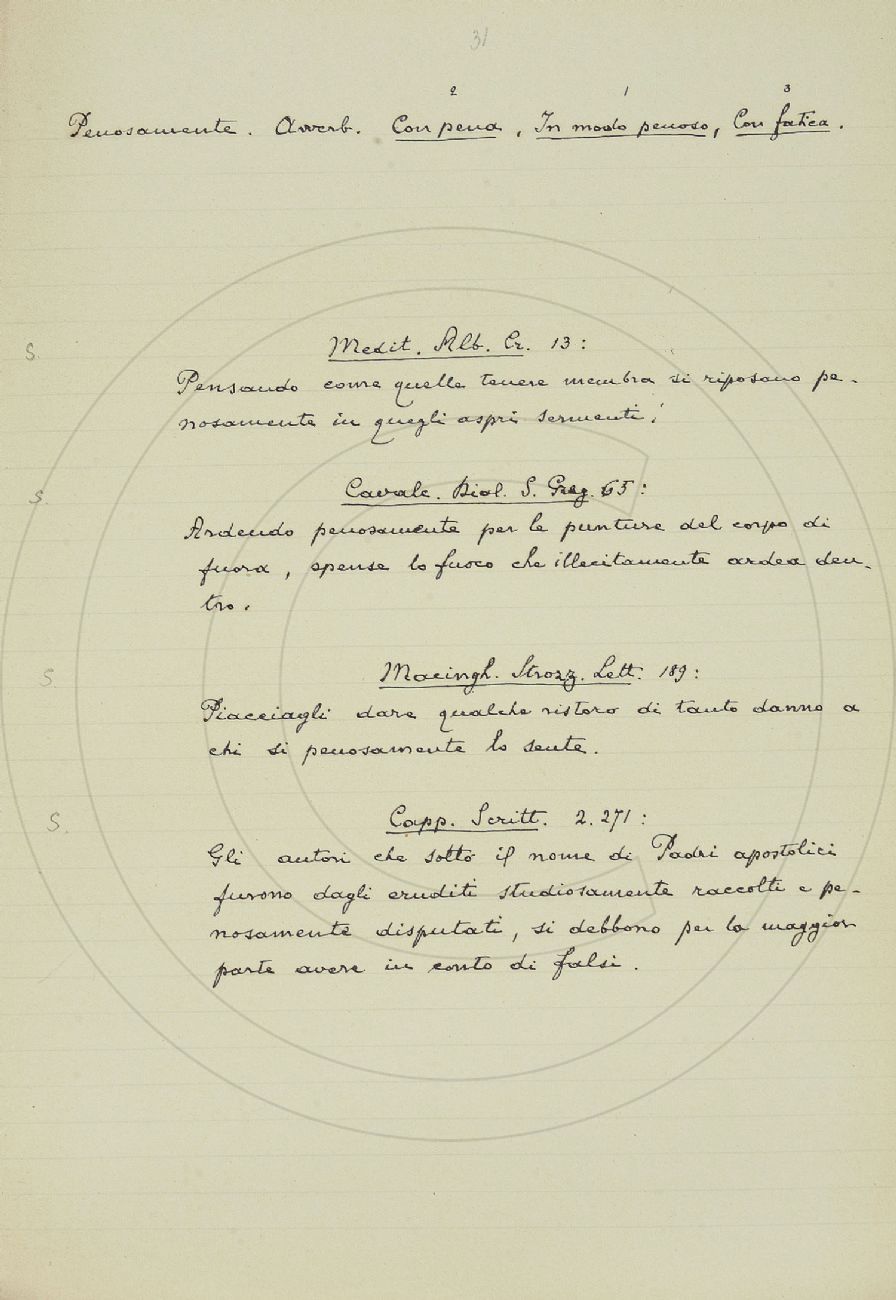 31
2 1 3
Penosamente. Avverb. Con pena, In modo penoso, Con fatica.
S. Medit. Alb. Cr. 13:
Pensando come quelle tenere membra si riposano pe-
nosamente in quegli aspri sermenti!
S. Cavalc. Dial. S. Greg. 65:
Ardendo penosamente per le punture del corpo di
fuora, spense lo fuoco che illecitamente ardea den-
tro.
S. Macingh. Strozz. Lett. 189:
Piacciagli dare qualche ristoro di tanto danno a
chi si penosamente lo sente.
S. Capp. Scritt. 2.271:
Gli autori che sotto il nome di Padri apostolici
furono dagli eruditi studiosamente raccolti e pe-
nosamente disputati, si debbono per la maggior
parte avere in conto di falsi.